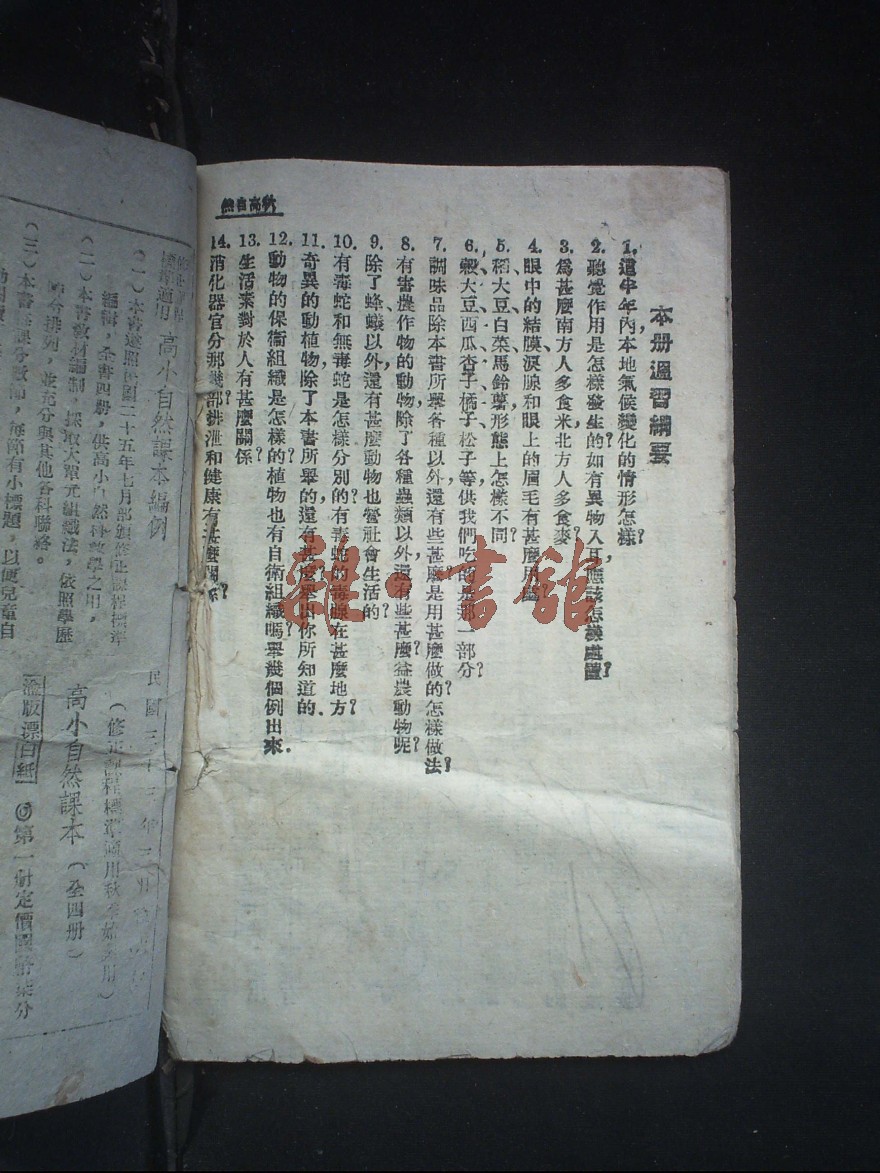 本册溫習綱要
1. 這半年內,本地氣候變化的情形怎樣?
2. 聽覺作用是怎樣發生的?如有異物入耳,應該怎樣處置?
3. 爲甚麼南方人多食米,北方人多食麥?
4. 眼中的結膜、淚腺和眼上的眉毛有甚麼用
5. 稻、大豆、白菜、馬鈴薯,形態上怎樣不同?
6. 穀、大豆、西瓜、杏子、橘子、松子等,供我們吃的是那一部分?
7. 調味品除本書所舉各種以外,還有些甚麼?是用甚麼做的?怎樣做法?
8. 有害農作物的動物,除了各種蟲類以外,還有些甚麼?益農動物呢?
9. 除了蜂蟻以外,還有甚麼動物也營社會生活的?
10. 有毒蛇和無毒蛇是怎樣分別的?有毒蛇的毒腺在甚麼地方?
11. 奇異的動植物,除了本書所舉的,還有甚麼?舉出你所知道的.
12. 動物的保衞組織是怎樣的?植物也有自衛組織嗎?舉幾個例出來.
13. 生活素對於人有甚麼關係?
14. 消化器官分那幾部?排泄和健康有甚麼關係?
秋高自然
標準適用 高小自然課本編例
(一)本書遵照民國二十五年七月部頒修正課程標準
編輯,全書四册,供高小自然科教學之用,
(二)本書教材編制,採取大單元組織法,依照學歷
時令排列,並充分與其他各科聯絡。
(三)本書每課分數節,每節有小標題,以便兒童自
民國三十三年
(修正課程標準適用秋季始業用)
高小自然課本(全四册)
瀹版漂白紙 第一册定價國幣柒分
雜·書館